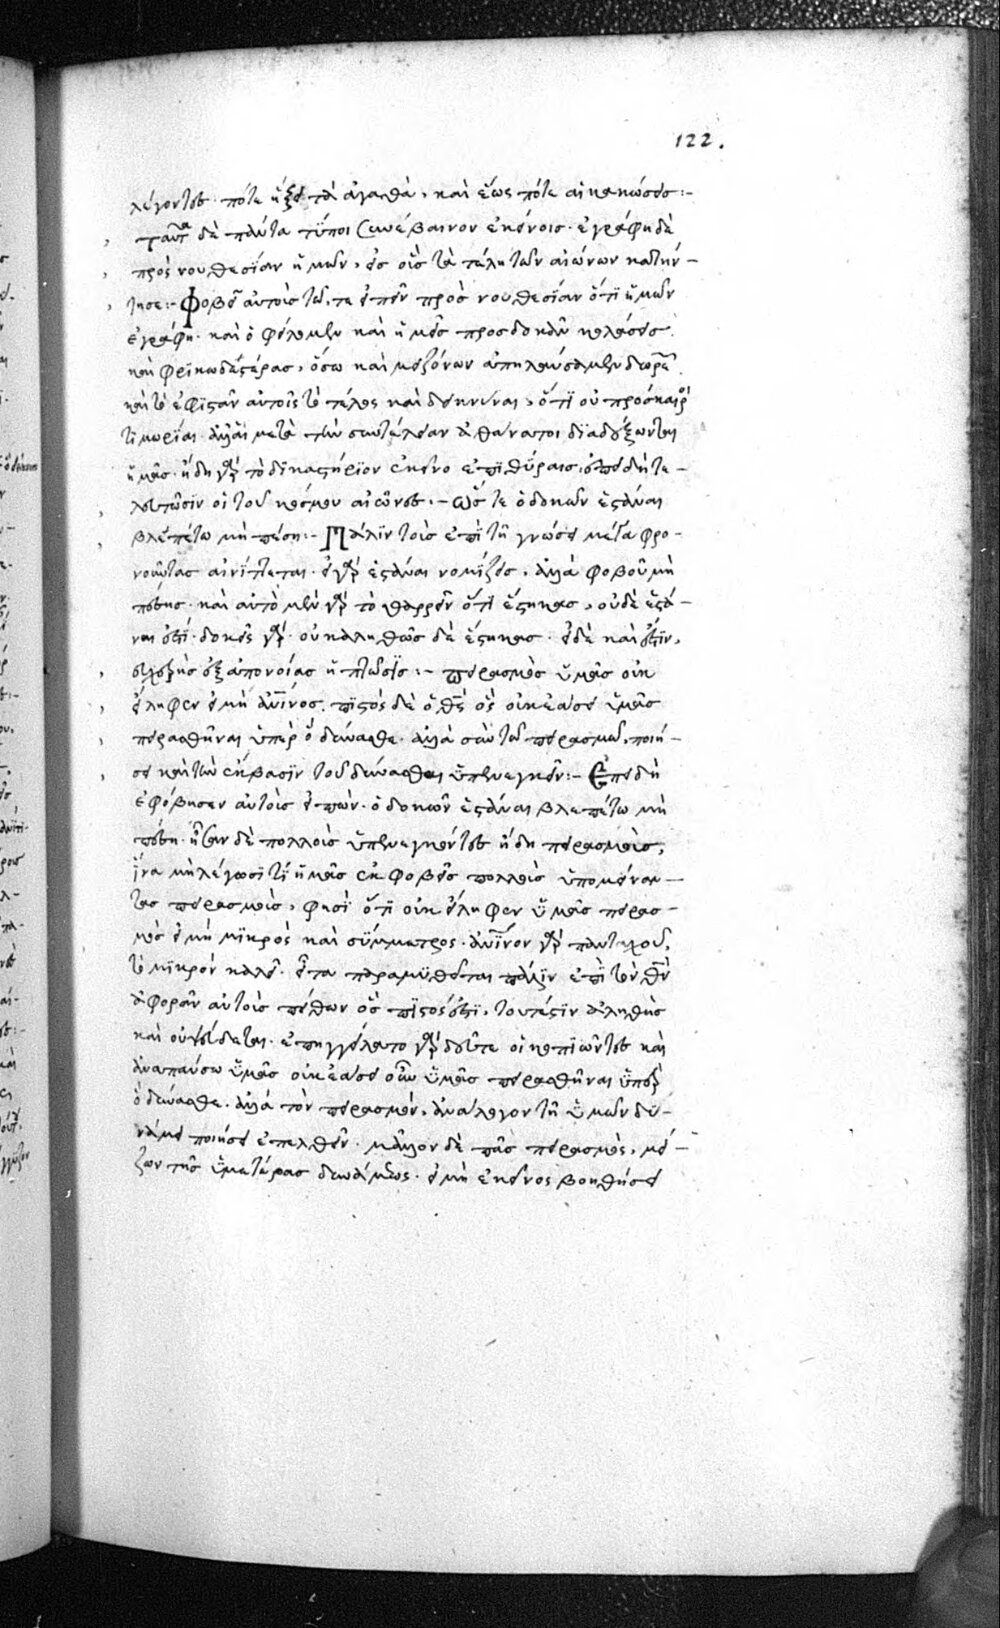 122.
λέγοντες πότε ἥξει τὰ ἀγαθὰ, καὶ ἕως πότε αἱ κακώσεις:-
ταῦτα δὲ πάντα τύποι συνέβαινον ἐκείνοις. ἐγράφη δὲ
πρὸς νουθεσίαν ἡμῶν, εἰς οὓς τὰ τέλη τῶν αἰώνων κατήν-
τησε:- Φοβεῖ αὐτοὺς τῶ, τε εἰπεῖν πρὸς νουθεσίαν ὅτι ἡμῶν
ἐγράφη. καὶ ὀφείλομεν καὶ ἡμεῖς προσδοκᾶν κολάσεις.
καὶ φρικωδεστέρας, ὅσω καὶ μειζόνων ἀπηλαύσαμεν δωρεῶν.
καὶ τὸ ἐφιστᾶν αὐτοῖς τὸ τέλος καὶ δεικνύναι, ὅτι οὐ πρόσκαιροι
τιμωρίαι ἀλλ' αἱ μετὰ τὴν συντέλειαν ἀθάνατοι διαδέξωνται
ἡμᾶς. ἤδη γὰρ τὸ δικαστήριον ἐκεῖνο ἐπὶ θύραις. ἐπειδή τε-
λευτῶσιν οἱ τοῦ κόσμου αἰῶνες.- ὥστε ὁ δοκῶν ἑστάναι
βλεπέτω μὴ πέση:- Πάλιν τοὺς ἐπὶ τῆ γνώσει μέγα φρο-
νοῦντας αἰνίττεται. εἰ γὰρ ἑστάναι νομίζεις, ἀλλὰ φοβοῦ μὴ
πέσης. καὶ αὐτὸ μὲν γὰρ τὸ θαρρεῖν ὅτι ἕστηκας, οὐδὲ ἑστά-
ναι ἐστί. δοκεῖς γάρ. οὐκ ἀληθῶς δὲ ἕστηκας. εἰ δὲ καὶ ἔστιν,
εὐχερὴς ἐξ ἀπονοίας ἡ πτῶσις:- πειρασμὸς ὑμᾶς οὐκ
εἴληφεν εἰ μὴ ἀνθρώπινος. πιστὸς δὲ ὁ θεὸς ὃς οὐκ ἐάσει ὑμᾶς
πειρασθῆναι ὑπὲρ ὃ δύνασθε. ἀλλὰ σὺν τῶ πειρασμῶ, ποιή-
σει καὶ τὴν ἔκβασιν τοῦ δύνασθαι ὑπενεγκεῖν:- Ἐπειδὴ
ἐφόβησεν αὐτοὺς εἰπών. ὁ δοκῶν ἑστάναι βλεπέτω μὴ
πέση. ἦσαν δὲ πολλοὺς ὑπενεγκόντες ἤδη πειρασμοὺς,
ἵνα μὴ λέγωσι τί ἡμᾶς ἐκφοβεῖς πολλοὺς ὑπομείναν-
τας πειρασμοὺς, φησὶ ὅτι οὐκ εἴληφεν ὑμᾶς πειρασ-
μὸς εἰ μὴ μικρὸς καὶ σύμμετρος. ἀνθρώπινον γὰρ πανταχοῦ,
τὸ μικρὸν καλεῖ. εἶτα παραμυθεῖται πάλιν ἐπὶ τὸν θεὸν
ἀφορᾶν αὐτοὺς πείθων ὃς πιστός ἐστι, τουτέστιν ἀληθὴς
καὶ οὐ ψεύδεται. ἐπηγγείλατο γὰρ δεῦτε οἱ κοπιῶντες καὶ
ἀναπαύσω ὑμᾶς οὐκ ἐάσει οὖν ὑμᾶς πειρασθῆναι ὑπὲρ
ὃ δύνασθε. ἀλλὰ τὸν πειρασμὸν, ἀνάλογον τῆ ὑμῶν δυ-
νάμει ποιήσει ἐπελθεῖν. μᾶλλον δὲ πᾶς πειρασμὸς, μεί-
ζων τῆς ὑμετέρας δυνάμεως. εἰ μὴ ἐκεῖνος βοηθήσει